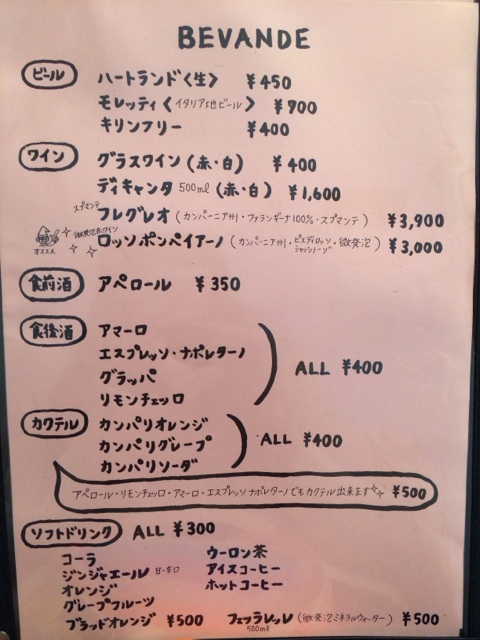 BEVANDE
ビール
ハートランド〈生〉 ¥450
モレッティ〈イタリア地ビール〉 ¥700
キリンフリー ¥400
ワイン
グラスワイン(赤・白) ¥400
デキャンタ 500ml (赤・白) ¥1,600
スプマンテ
フレグレオ (カンパーニア州・ファランギーナ100%・スプマンテ) ¥3,900
微発泡赤ワイン
オススメ
ロッソポンペイアーノ (カンパーニア州・ピエディロッソ・シャシノーゾ・微発泡) ¥3,000
食前酒
アペロール ¥350
食後酒
アマーロ
エスプレッソ・ナポレターノ
グラッパ
リモンチェッロ
ALL ¥400
カクテル
カンパリオレンジ
カンパリグレープ
カンパリソーダ
ALL ¥400
アペロール・リモンチェッロ・アマーロ・エスプレッソナポレターノでもカクテル出来ます ¥500
ソフトドリンク ALL ¥300
コーラ
ジンジャエール 甘・辛口
オレンジ
グレープフルーツ
ブラッドオレンジ ¥500
ウーロン茶
アイスコーヒー
ホットコーヒー
フェッラレッレ (微発泡ミネラルウォーター) ¥500
500ml